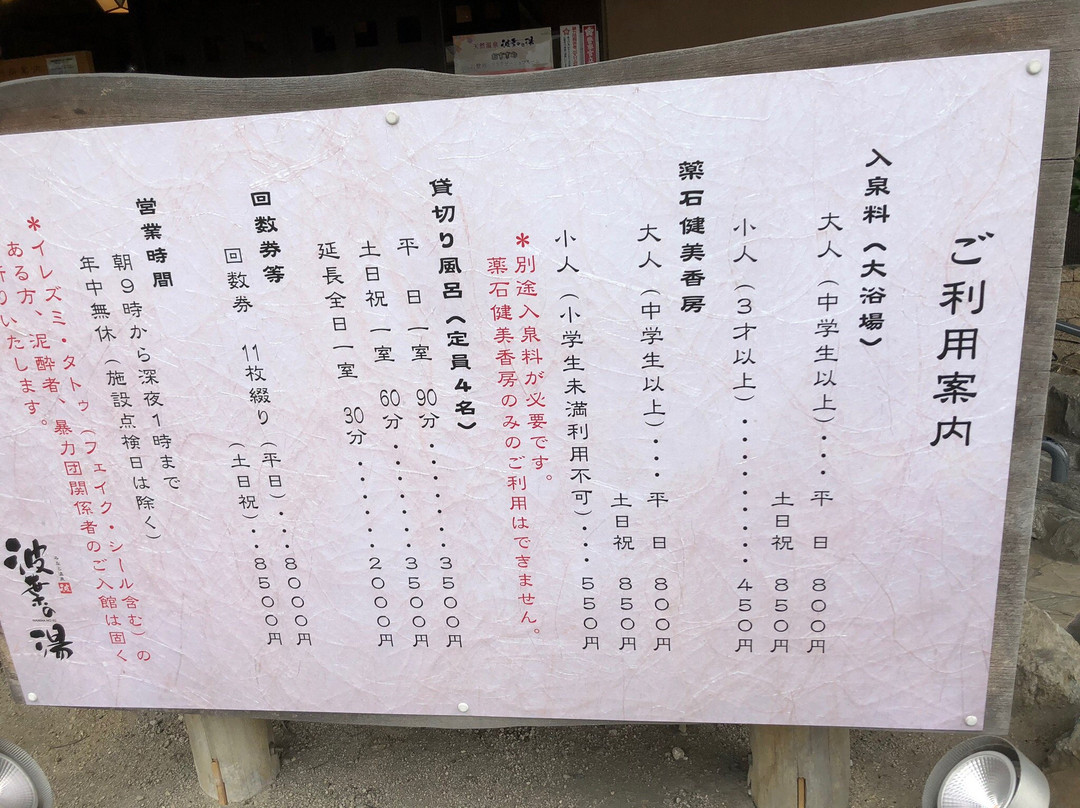 ご利用案内
入泉料（大浴場）
大人（中学生以上）・・・平　日　８００円
土日祝　８５０円
小人（３才以上）・・・・・・・・・４５０円
薬石健美香房
大人（中学生以上）・・・平　日　８００円
土日祝　８５０円
小人（小学生未満利用不可）・・・５５０円
＊別途入泉料が必要です。
薬石健美香房のみのご利用はできません。
貸切り風呂（定員４名）
平　日 一室　90分・・・・・・・３５００円
土日祝 一室　60分・・・・・・・３５００円
延長全日一室　30分・・・・・・・２０００円
回数券等
回数券　11枚綴り（平日）・・・８０００円
（土日祝）・・・８５００円
営業時間
朝９時から深夜１時まで
年中無休（施設点検日は除く）
＊イレズミ・タトゥ（フェイク・シール含む）の
ある方、泥酔者、暴力団関係者のご入館は固く
いたします。
波葉の湯